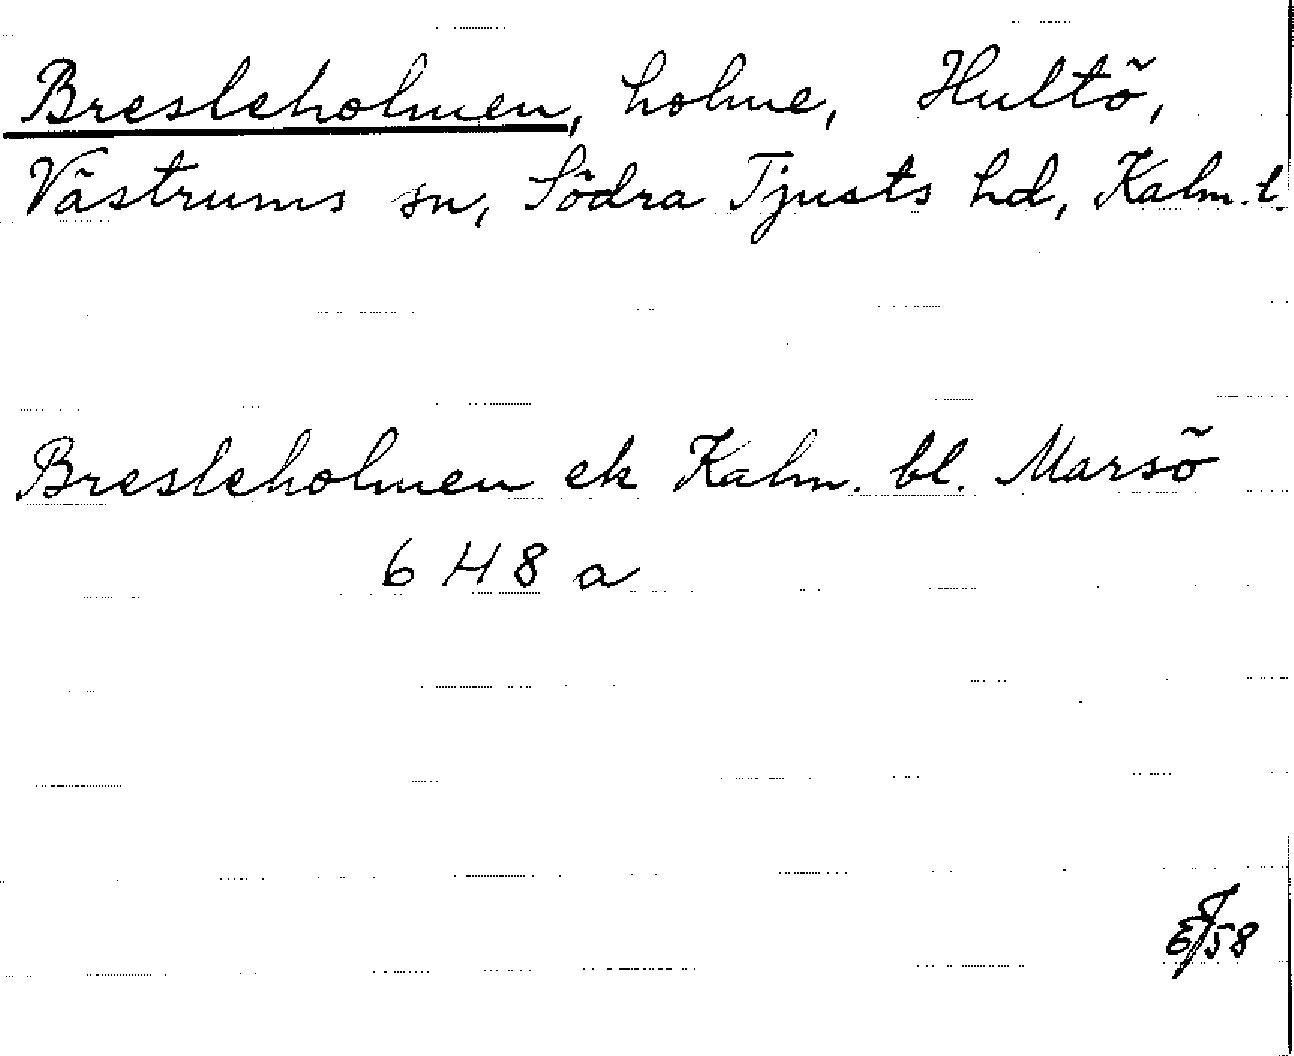 Bresleholmen, holme, Hultö,
Västrums sn, Södra Tjusts hd, Kalm. l.
Bresleholmen ek Kalm. bl. Marsö
6 H 8 a
58